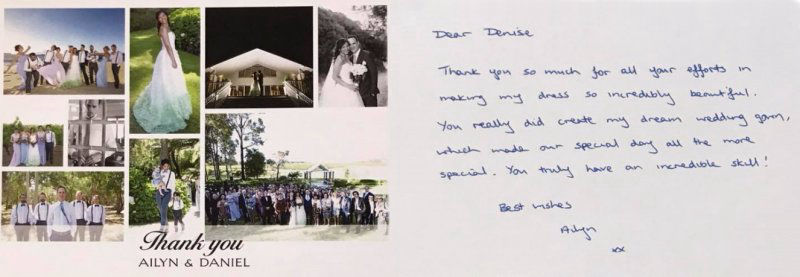 Thank you
AILYN & DANIEL
Dear Denise
Thank you so much for all your efforts in
making my dress so incredibly beautiful.
You really did create my dream wedding gown,
which made our special day all the more
special. You truly have an incredible skill!
Best wishes
Ailyn
xx